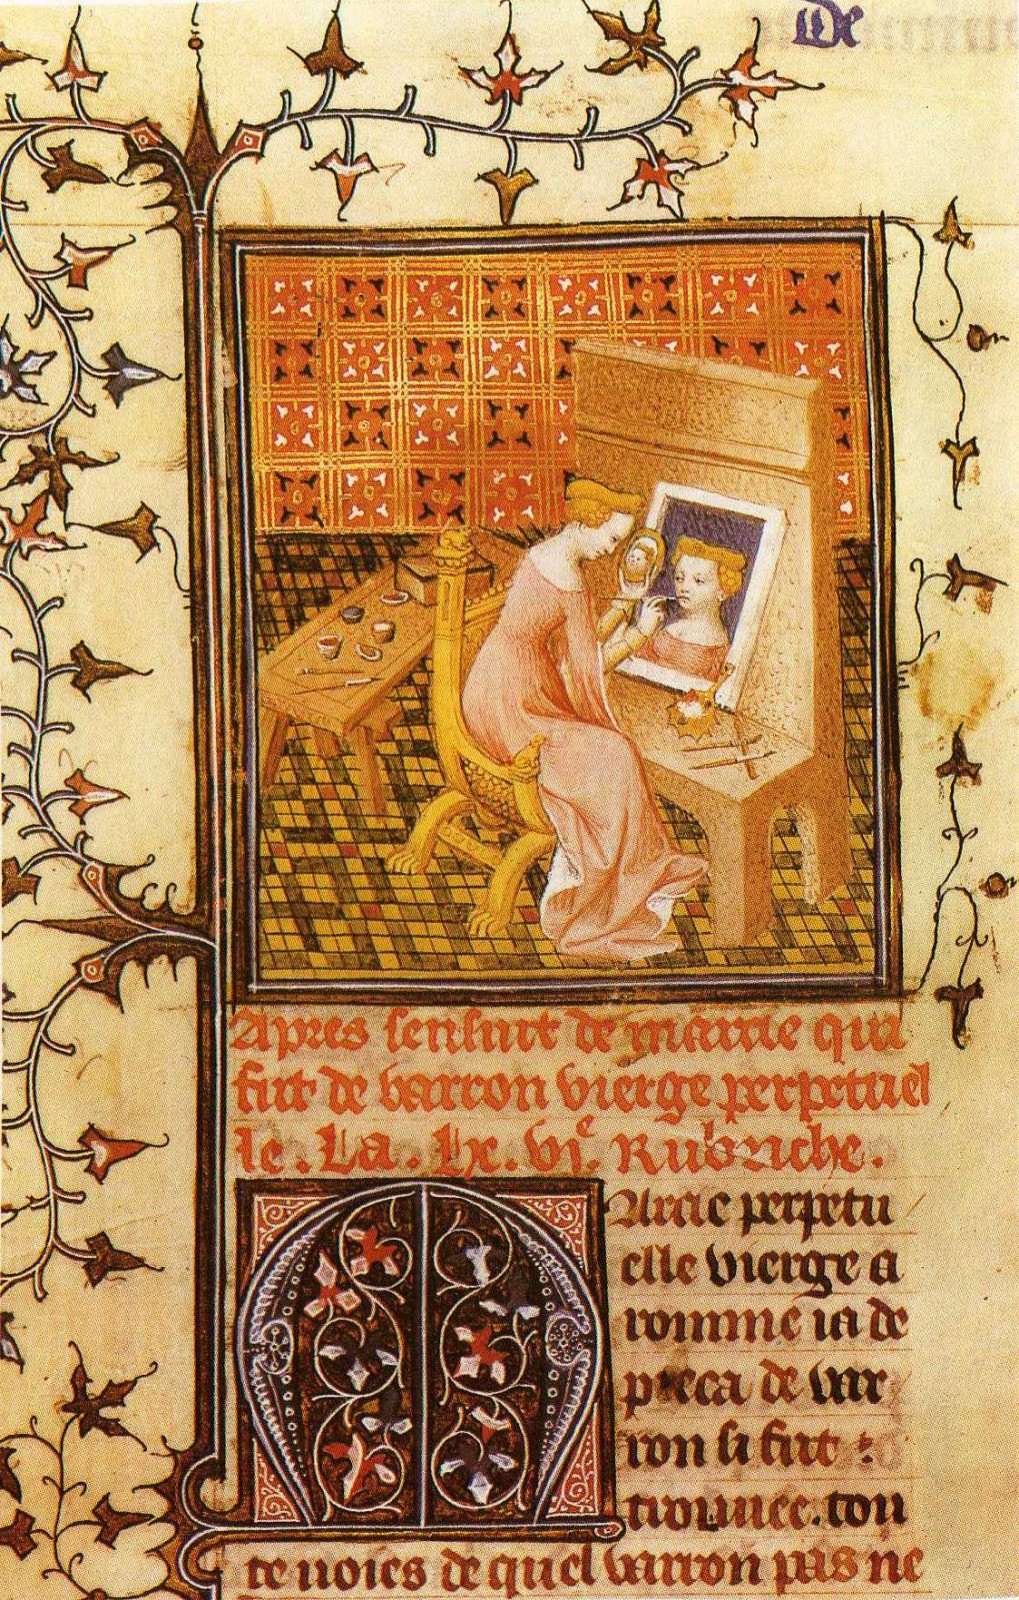 De
Apres sensuit de marcie qui
fut de varron vierge perpetuel
le . La . lx . vi.e Rubriche .
Marcie perpetu
elle vierge a
romme ia de
pieca de var
ron si fut
trouuee. tou
te uoies de quel varron pas ne